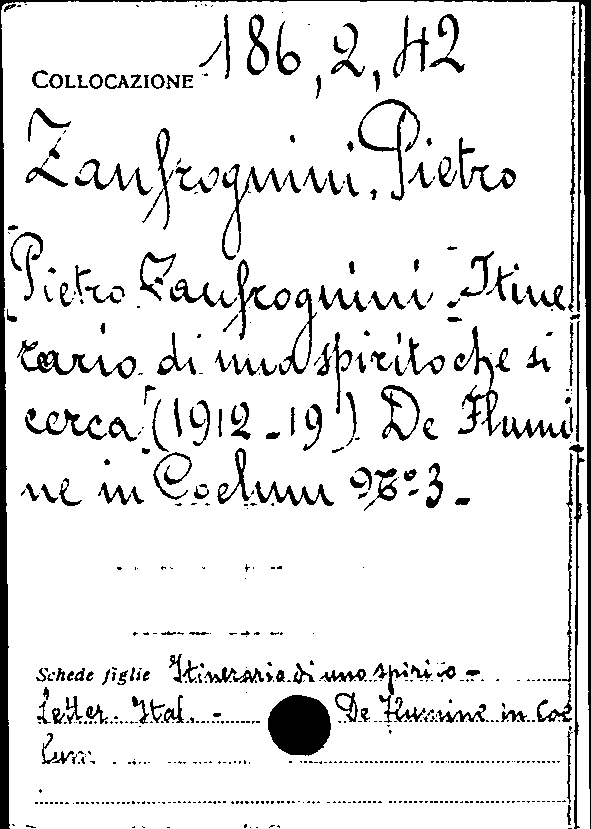 COLLOCAZIONE 186, 2, 42
Zanfrognini, Pietro
Pietro Zanfrognini - Itine
rario di uno spirito che si
cerca (1912-19) De Flumi
ne in Coelum No. 3 -
Schede figlie Itinerario di uno spirito -
Letter. Ital. - De Flumine in Coe
lum